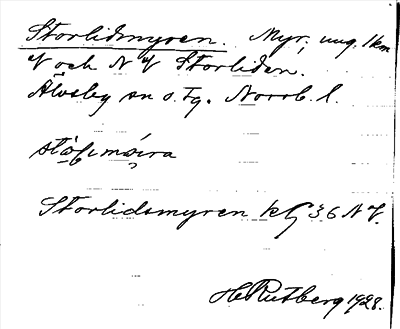 Storlidsmyren. Myr, ung. 1 km
V och NV Storliden.
Älvsby sn o. tg. Norrb. l.
Storlidsmyren kG 36 NV.
H Rutberg 1928.